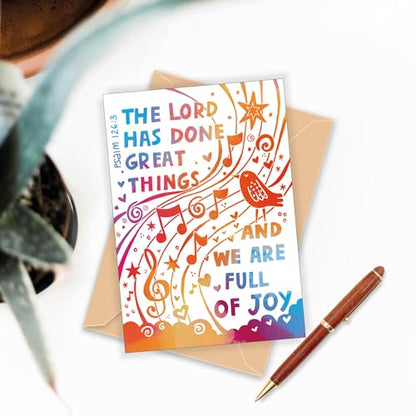 Psalm 126:3
THE LORD
HAS DONE
GREAT
THINGS
AND
WE ARE
FULL
OF JOY